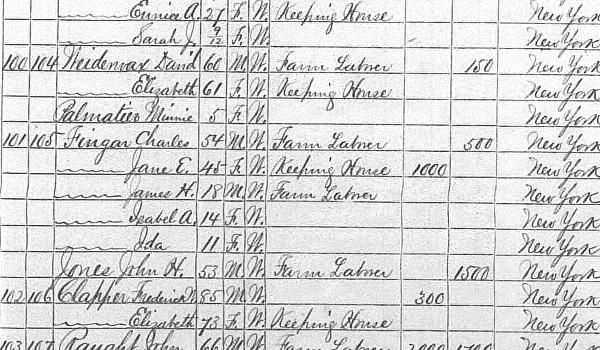 Eunice A. 27 F. W. Keeping House New York
Sarah J. 9/12 F. W. New York
100 104 Weidenwax David 60 M. W. Farm Labrer 150 New York
Elizabeth 61 F. W. Keeping House New York
Palmatier Minnie 5 F. W. New York
101 105 Fingar Charles 54 M. W. Farm Labrer 500 New York
Jane E. 45 F. W. Keeping House 1000 New York
James H. 18 M. W. Farm Labrer New York
Isabel A. 14 F. W. New York
Ida 11 F. W. New York
Jones John H. 53 M. W. Farm Labrer 1500 New York
102 106 Clapper Frederick 85 M. W. 300 New York
Elizabeth 73 F. W. Keeping House New York
103 107 John 66 M. W. Farm Labrer New York